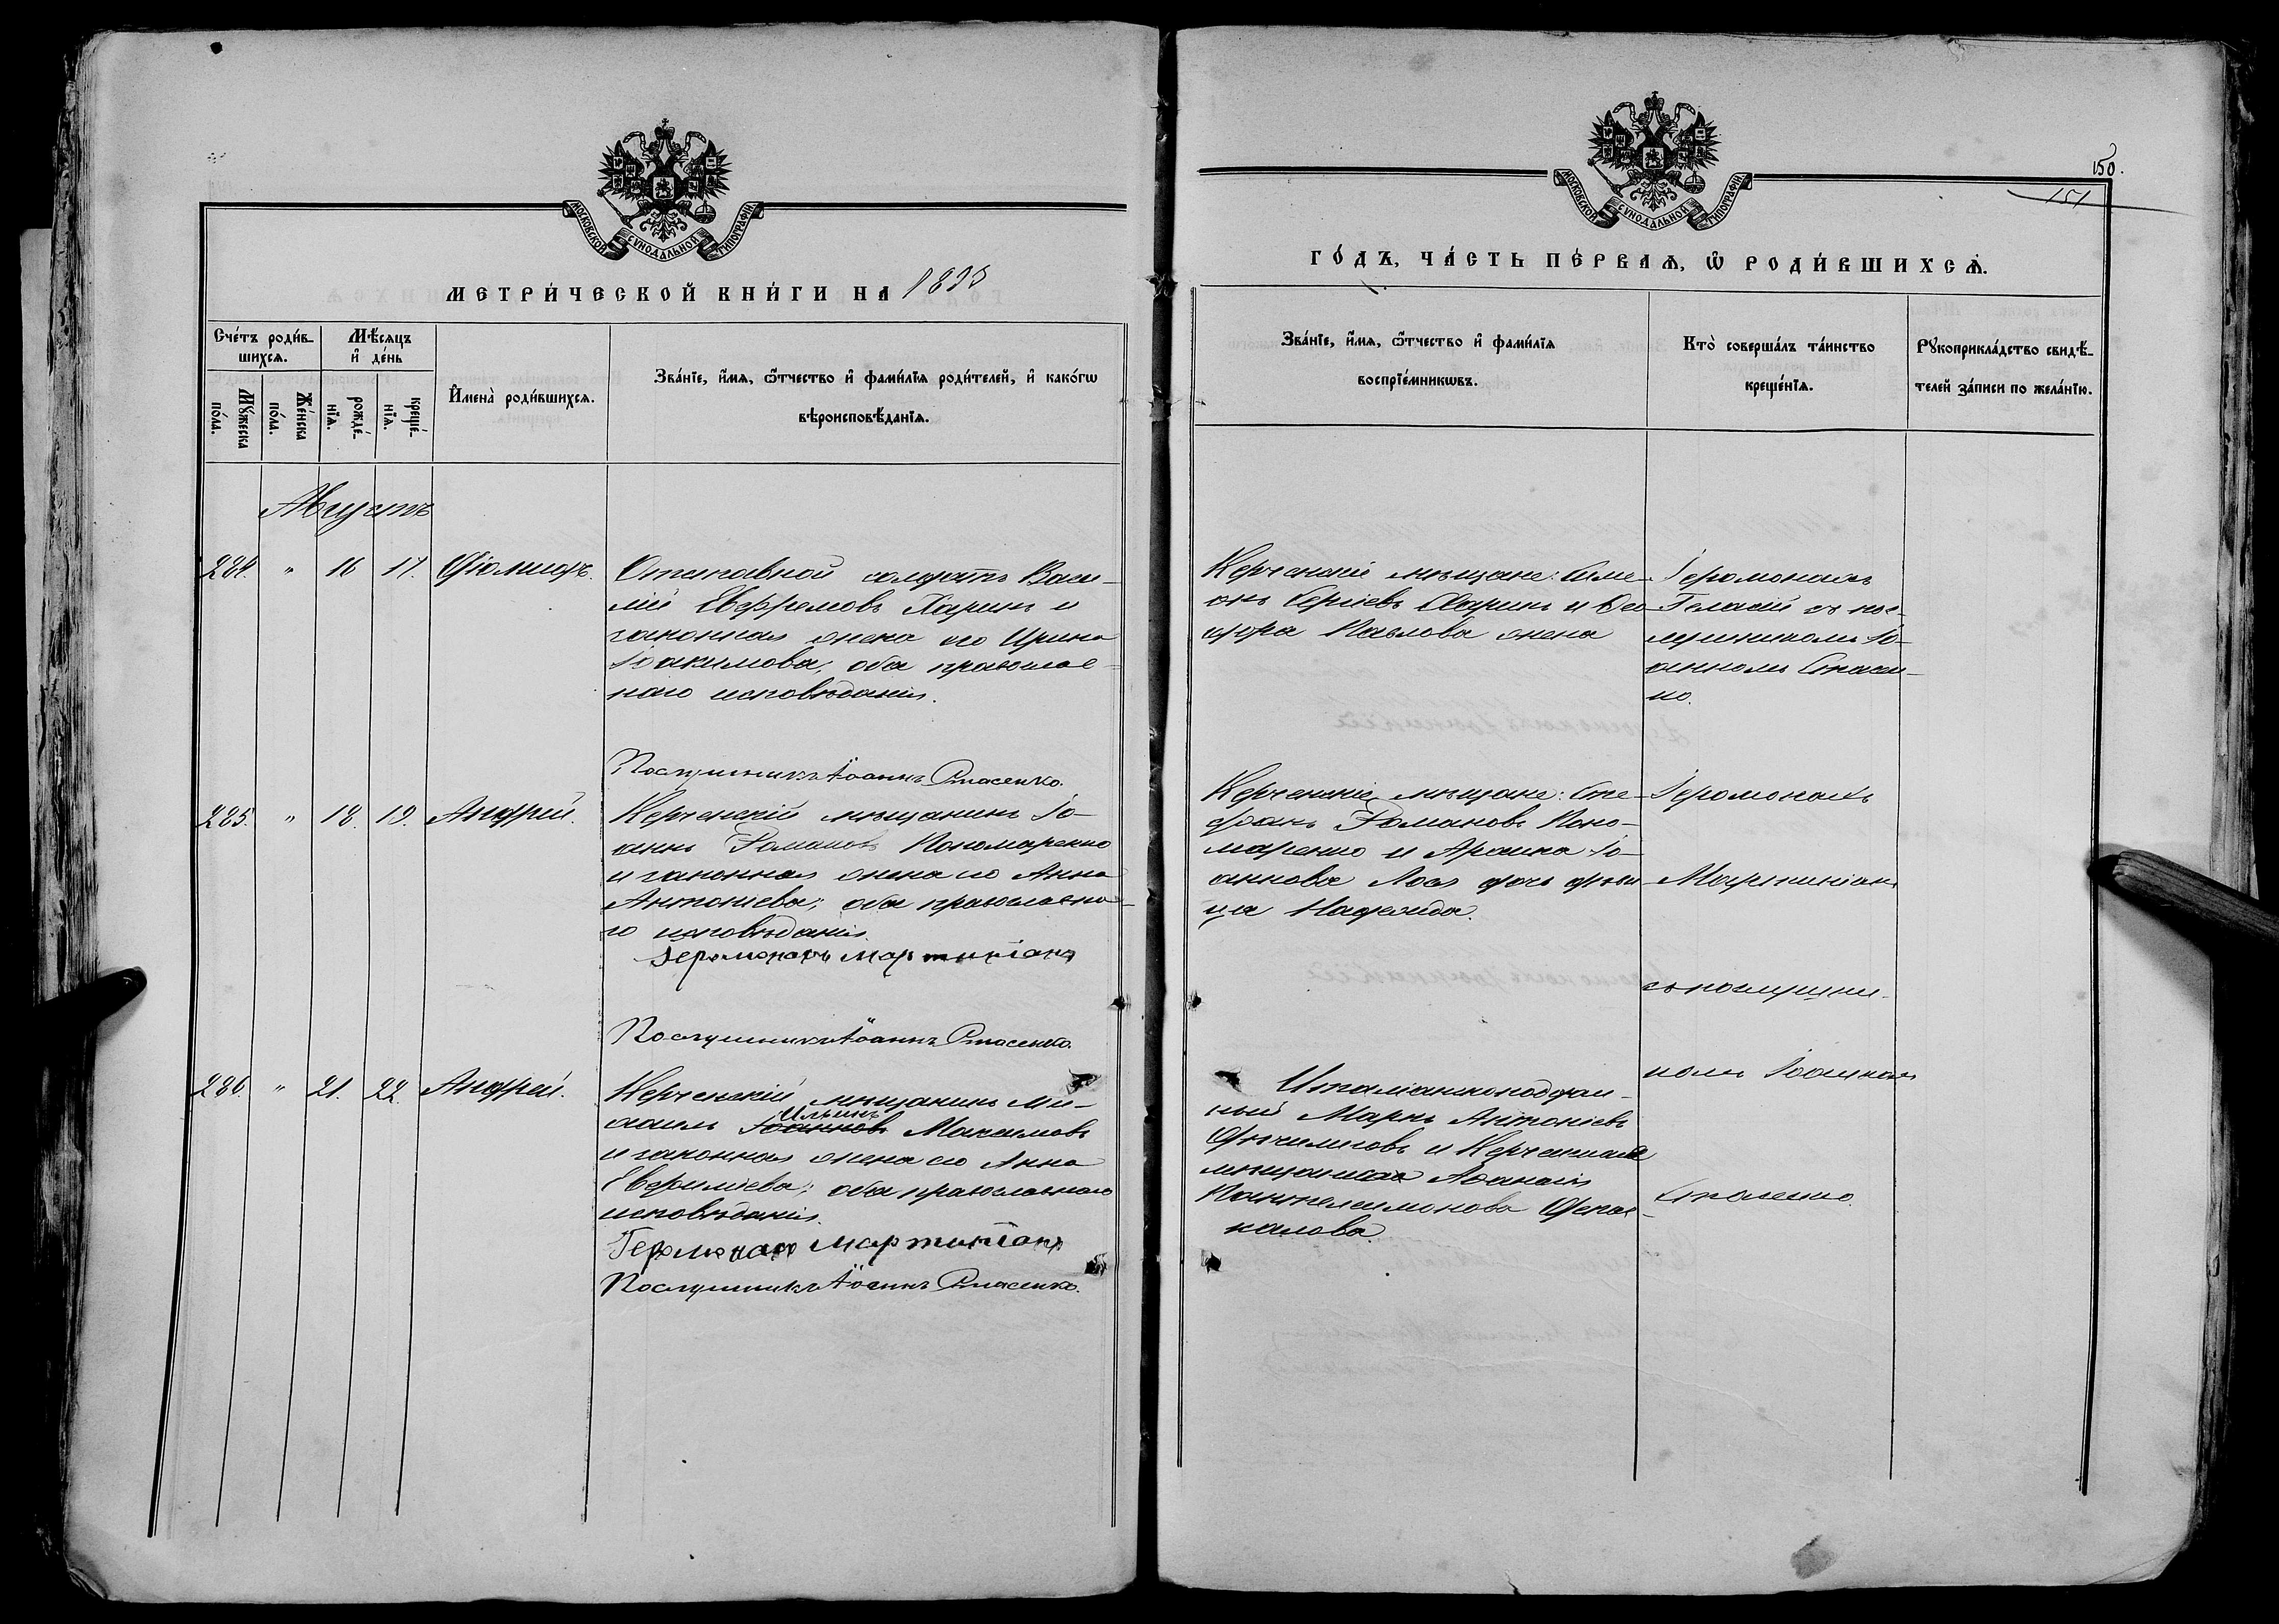 МОСКОВСКОЙ СѴНОДАЛЬНОЙ ТИПОГРАФІИ
МЕТРИ́ЧЕСКОЙ КНИ́ГИ НА 1895
Сче́тъ роди́в-
шихсѧ.
Мѣ́сяцъ
и҆ де́нь
Мꙋ́жеска
по́ла.
Же́нска
по́ла.
рожде́-
нїѧ.
креще́-
нїѧ.
И҆мена̀ роди́вшихсѧ.
Зва́нїе, и҆́мѧ, ѻ҆́тчество и҆ фами́лїѧ роди́телей, и҆ како́гѡ
вѣроисповѣ́данїѧ.
Августъ
284. " 16 17. Ѳіонифъ.
Отставной солдатъ Васи-
лій Евфремовъ Харинъ и
законная жена его Ирина
Іоакимова, оба православ-
наго исповѣданія.
Послушникъ Іоаннъ Стасенко.
285. " 18. 19. Андрей.
Керченскій мѣщанинъ Іо-
аннъ Романовъ Пономаренко
и законная жена его Анна
Антоніева; оба православна-
го исповѣданія.
Іеромонахъ Мартиніанъ
Послушникъ Іоаннъ Стасенко.
286. " 21. 22. Андрей.
Керченскій мѣщанинъ Ми-
Ильинъ
хаилъ Іоанновъ Максимовъ
и законная жена его Анна
Евфиміева; оба православнаго
исповѣданія.
Іеромонахъ Мартиніанъ
Послушникъ Іоаннъ Стасенко.
МОСКОВСКОЙ СѴНОДАЛЬНОЙ ТИПОГРАФІИ
150.
151
ГО́ДЪ, ЧА́СТЬ ПЕ́РВАѦ, Ѡ҆ РОДИ́ВШИХСѦ.
Зва́нїе, и҆́мѧ, ѻ҆́тчество и҆ фами́лїѧ
воспрїе́мникѡвъ.
Кто̀ соверша́лъ та́инство
креще́нїѧ.
Рꙋкоприкла́дство свидѣ́-
телей за́писи по жела́нїю.
Керченскіе мѣщане: Симе-
онъ Сергіевъ Харинъ и Ѳео-
дора Павлова жена
Іеромонахъ
Геласій съ пос-
лушникомъ Іо-
анномъ Стасен-
ко.
Керченскіе мѣщане: Сте-
фанъ Романовъ Поно-
маренко и Іо-
аннова дочь дѣви-
ца Надежда.
Іеромонахъ
Мартиніанъ
съ послушни-
комъ Іоанномъ
Стасенко.
Итальянскоподдан-
ный Маркъ Антоніевъ
и Керченская
мѣщанка Аѳанасія
Пантелеимонова
калова.